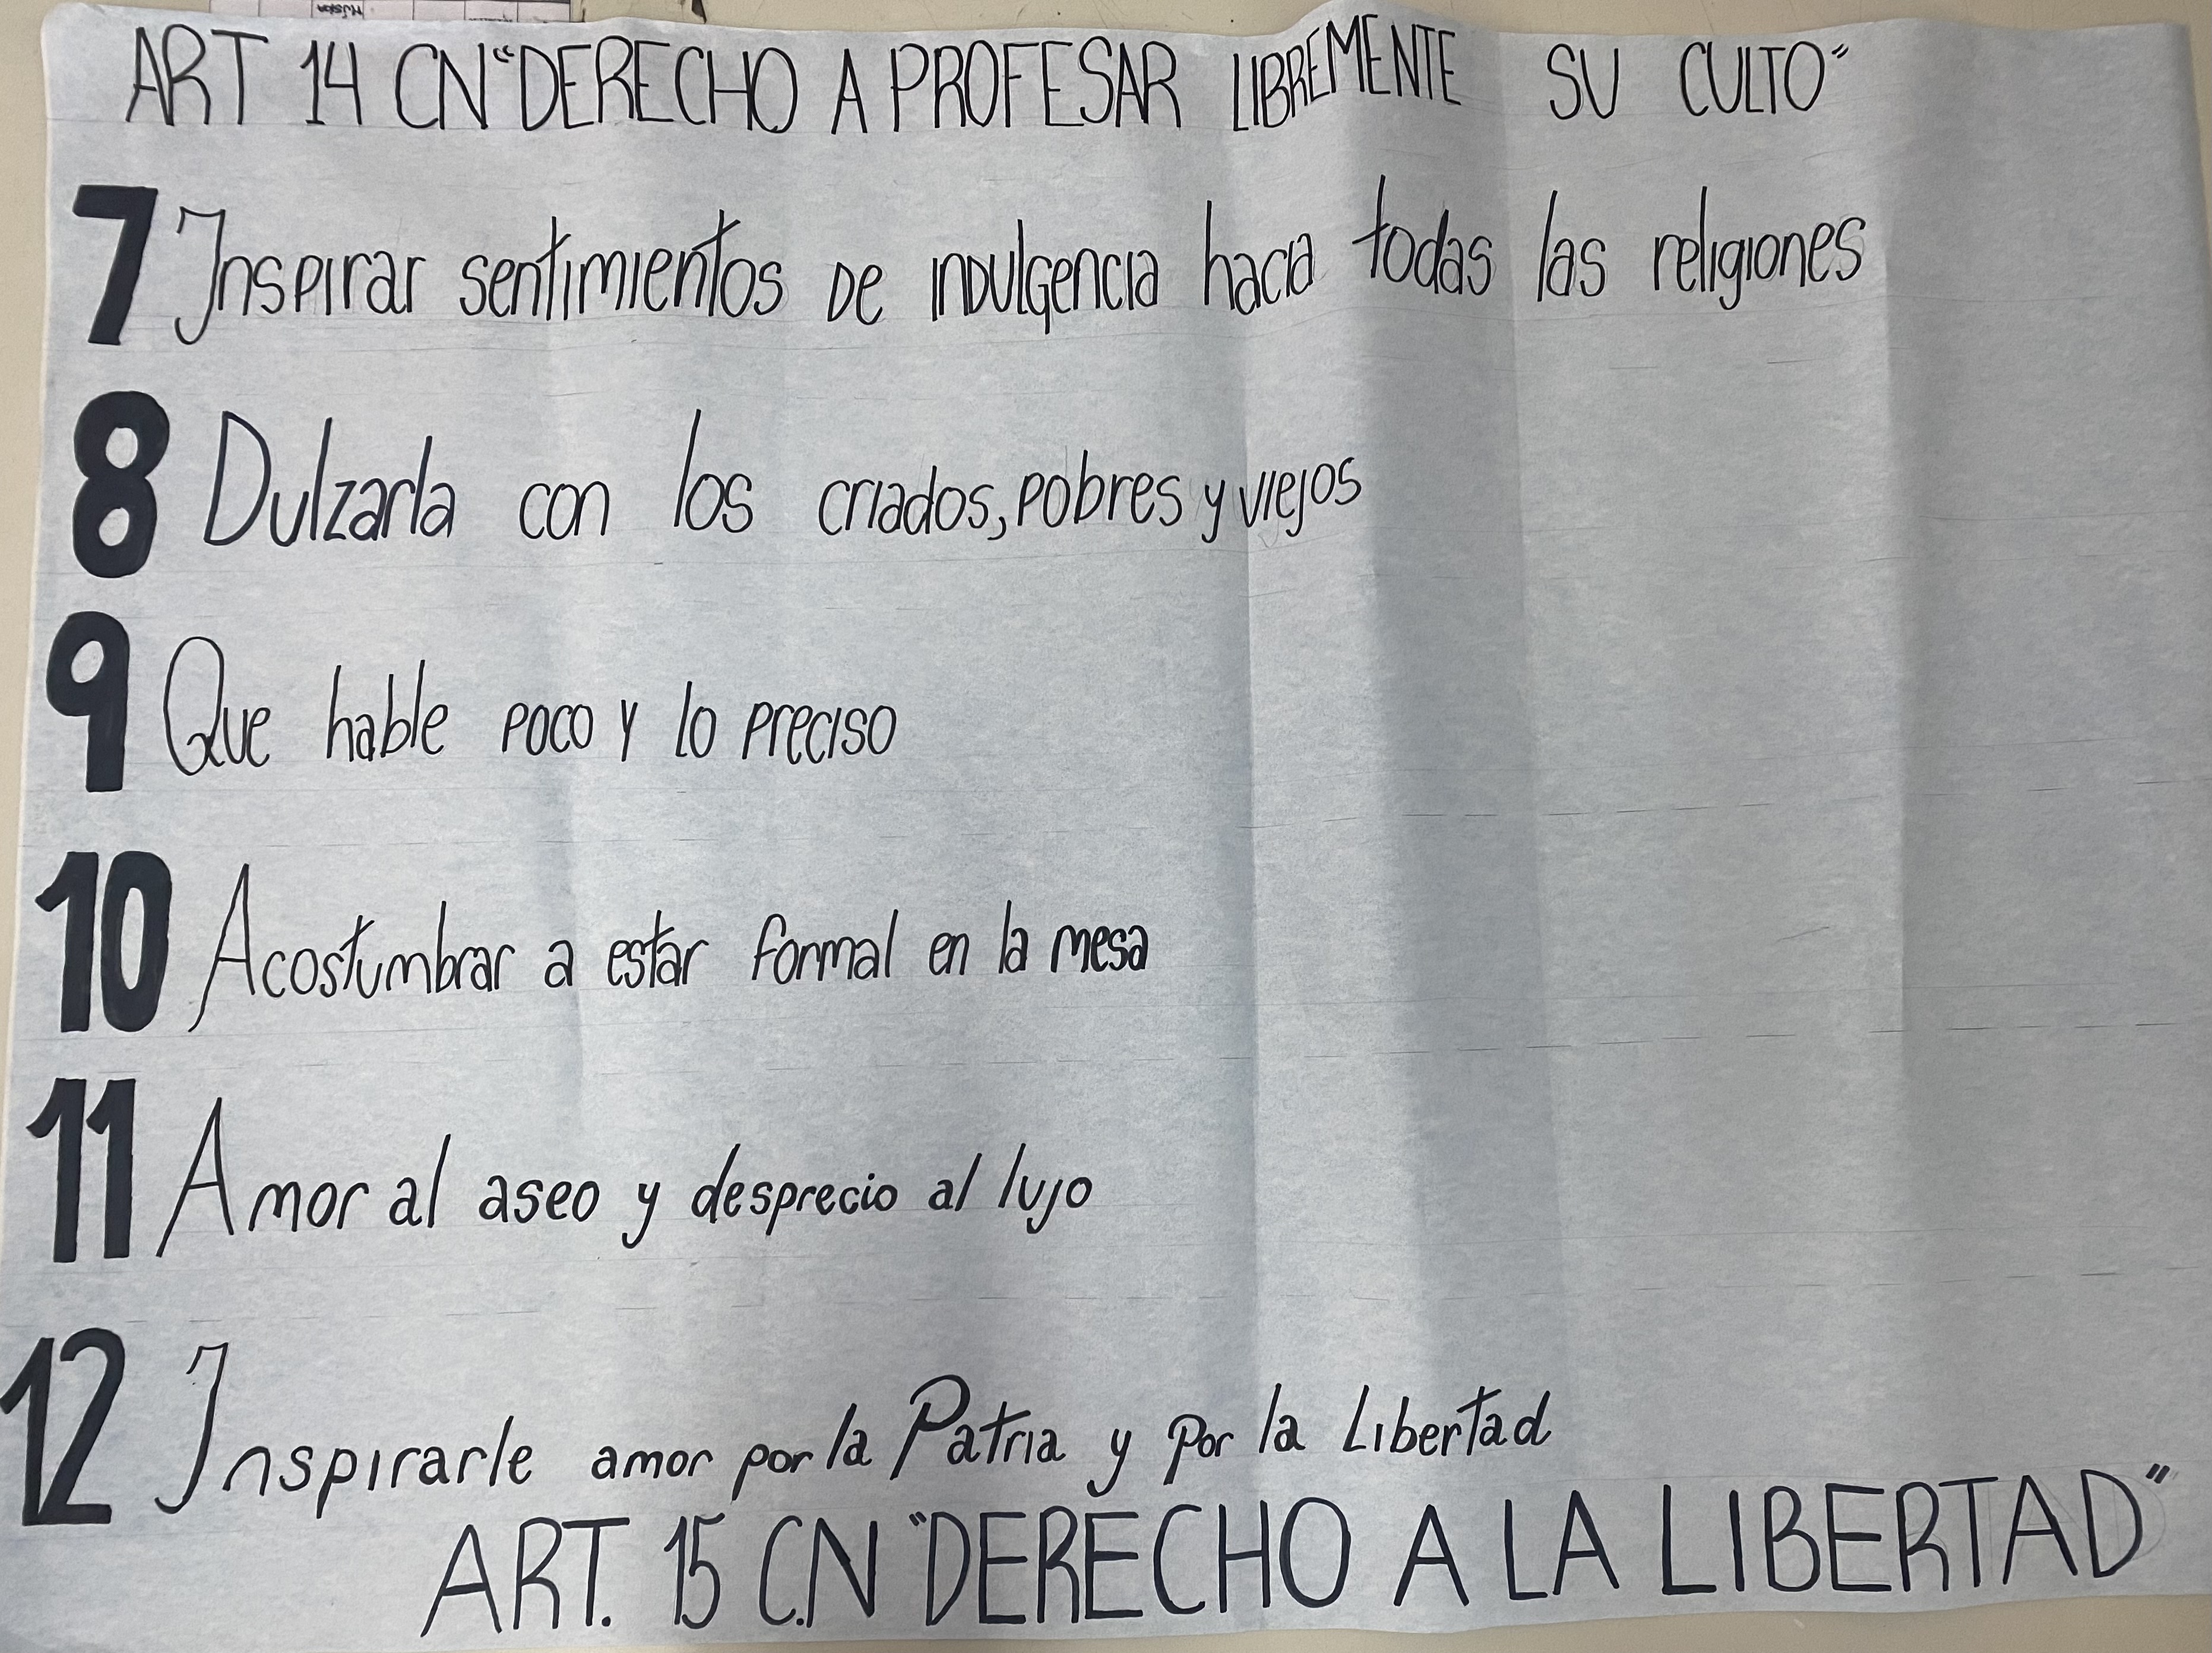 ART 14 CN "DERECHO A PROFESAR LIBREMENTE SU CULTO"
7 Inspirar sentimientos DE INDulgencia hacia todas las religiones
8 Dulzarla con los criados, pobres y viejos
9 Que hable poco y lo preciso
10 Acostumbrar a estar formal en la mesa
11 Amor al aseo y desprecio al lujo
12 Inspirarle amor por la Patria y por la Libertad
ART. 15 C.N "DERECHO A LA LIBERTAD"